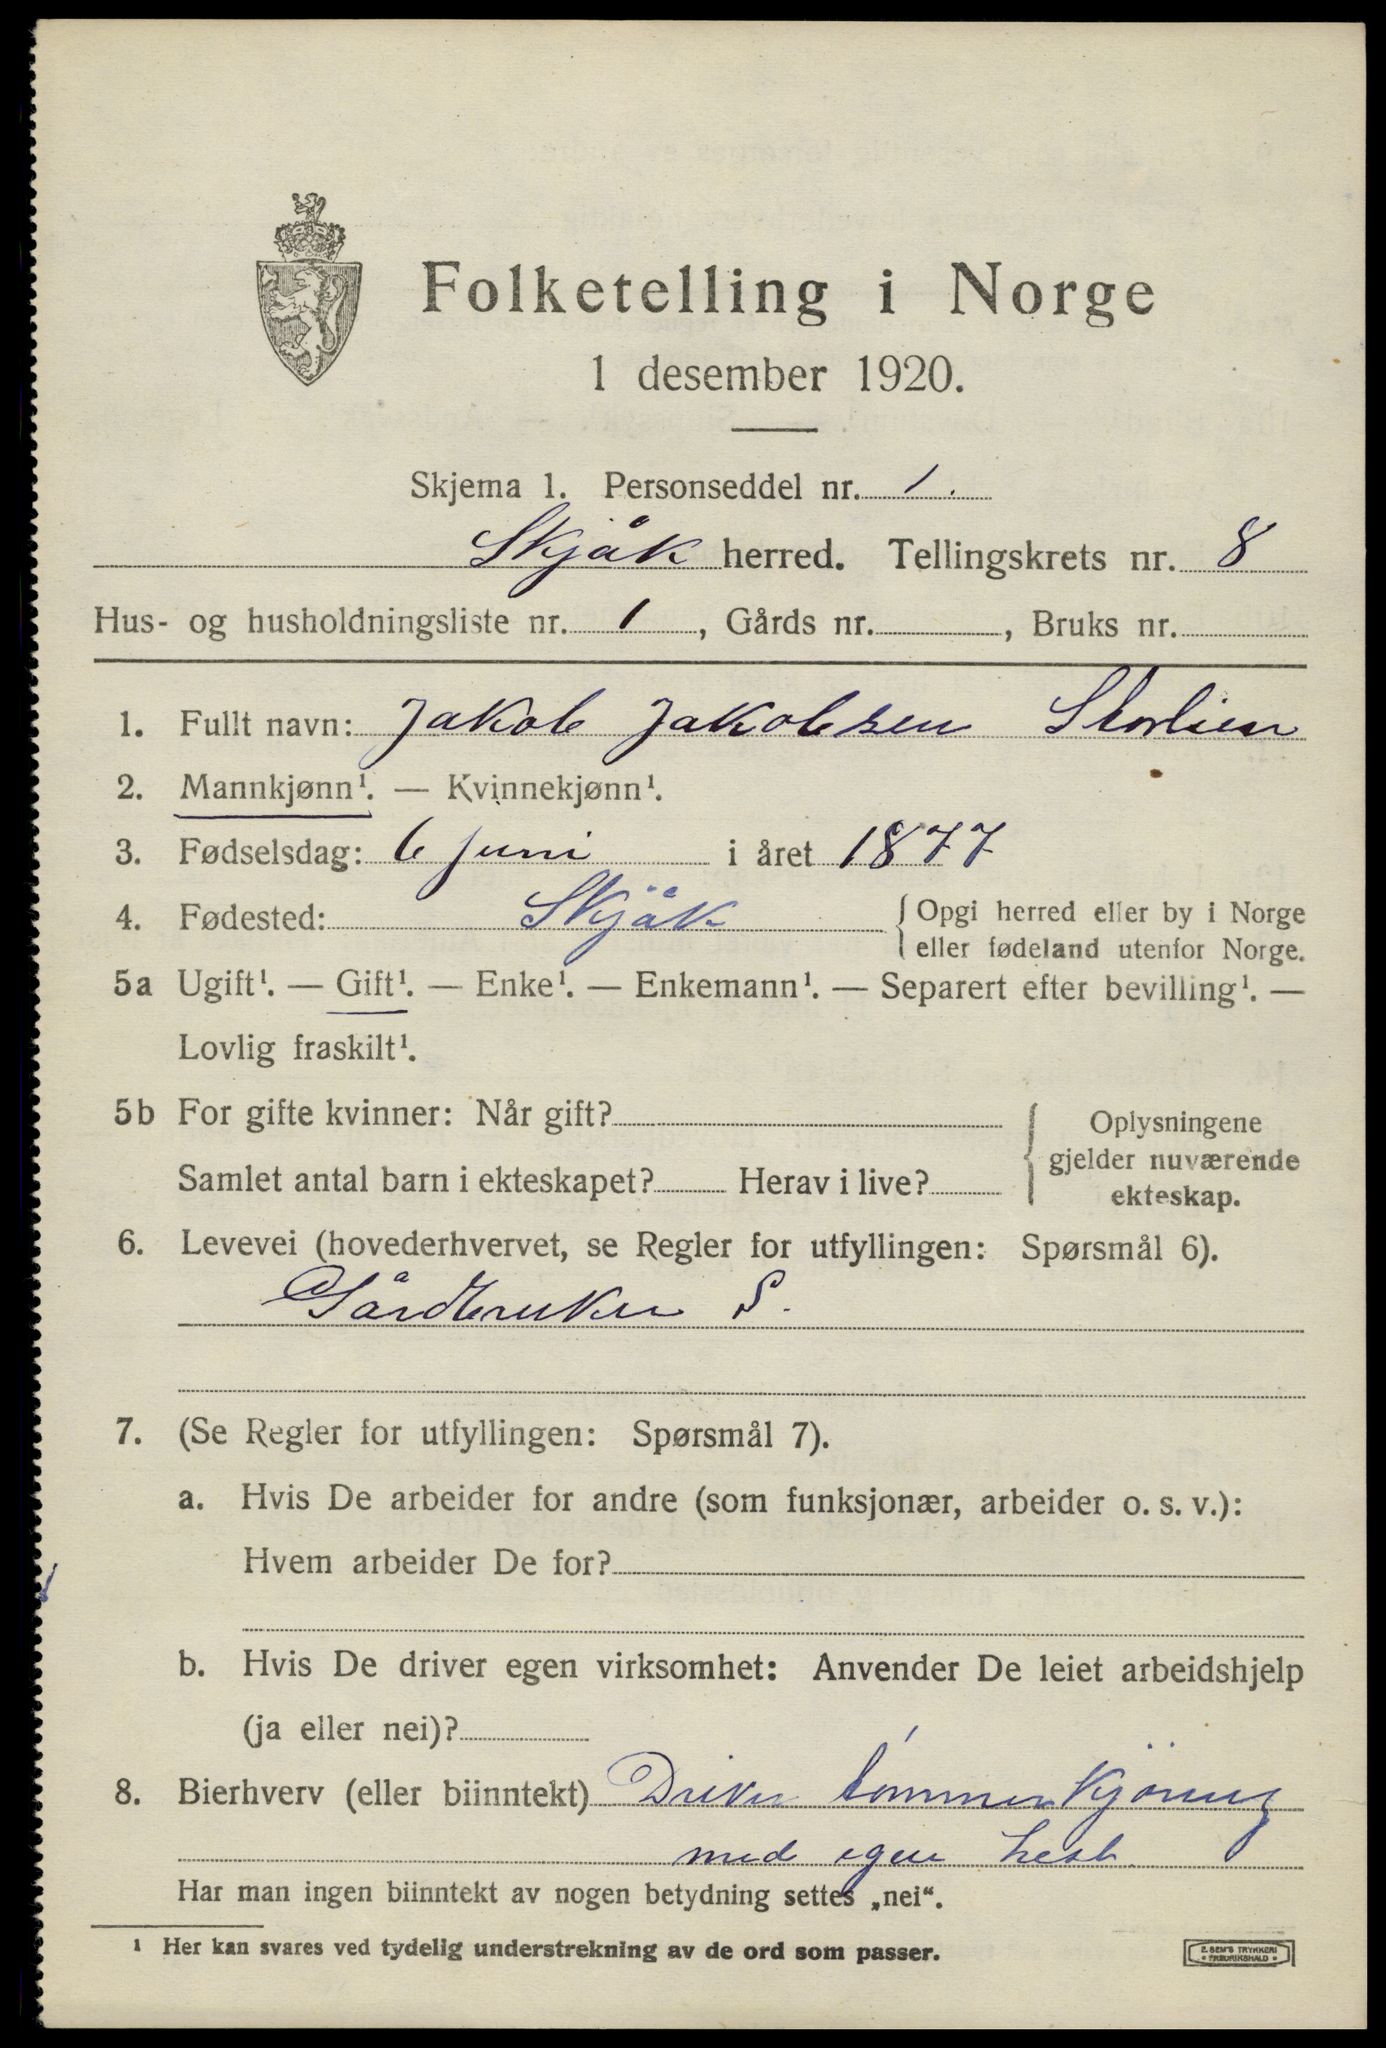 Folketelling i Norge
1 desember 1920.
Skjema 1. Personseddel nr. 1.
Skjåk herred. Tellingskrets nr. 8
Hus- og husholdningsliste nr. 1, Gårds nr. , Bruks nr.
1. Fullt navn: Jakob Jakobsen Storlien
2. Mannkjønn¹. — Kvinnekjønn¹.
3. Fødselsdag: 6 juni i året 1877
4. Fødested: Skjåk { Opgi herred eller by i Norge
eller fødeland utenfor Norge.
5a Ugift¹. — Gift¹. — Enke¹. — Enkemann¹. — Separert efter bevilling¹. —
Lovlig fraskilt¹.
5b For gifte kvinner: Når gift? { Oplysningene
gjelder nuværende
Samlet antal barn i ekteskapet? Herav i live?
ekteskap.
6. Levevei (hovederhvervet, se Regler for utfyllingen: Spørsmål 6).
Gårdbruker S.
7. (Se Regler for utfyllingen: Spørsmål 7).
a. Hvis De arbeider for andre (som funksjonær, arbeider o. s. v.):
Hvem arbeider De for?
b. Hvis De driver egen virksomhet: Anvender De leiet arbeidshjelp
(ja eller nei)?
8. Bierhverv (eller biinntekt) Driver tømmerkjöring
med egen hest.
Har man ingen biinntekt av nogen betydning settes „nei".
¹ Her kan svares ved tydelig understrekning av de ord som passer.
E. SEM'S TRYKKERI
FREDRIKSHALD